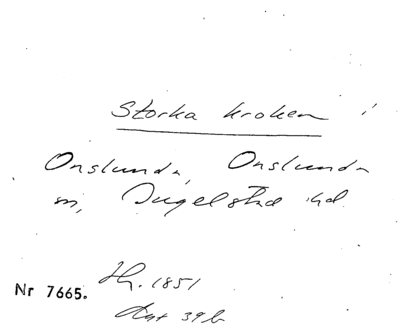 Storka kroken
Onslunda, Onslunda
sn, Ingelstad hd
Nr 7665. Hg. 1851
Akt 39b